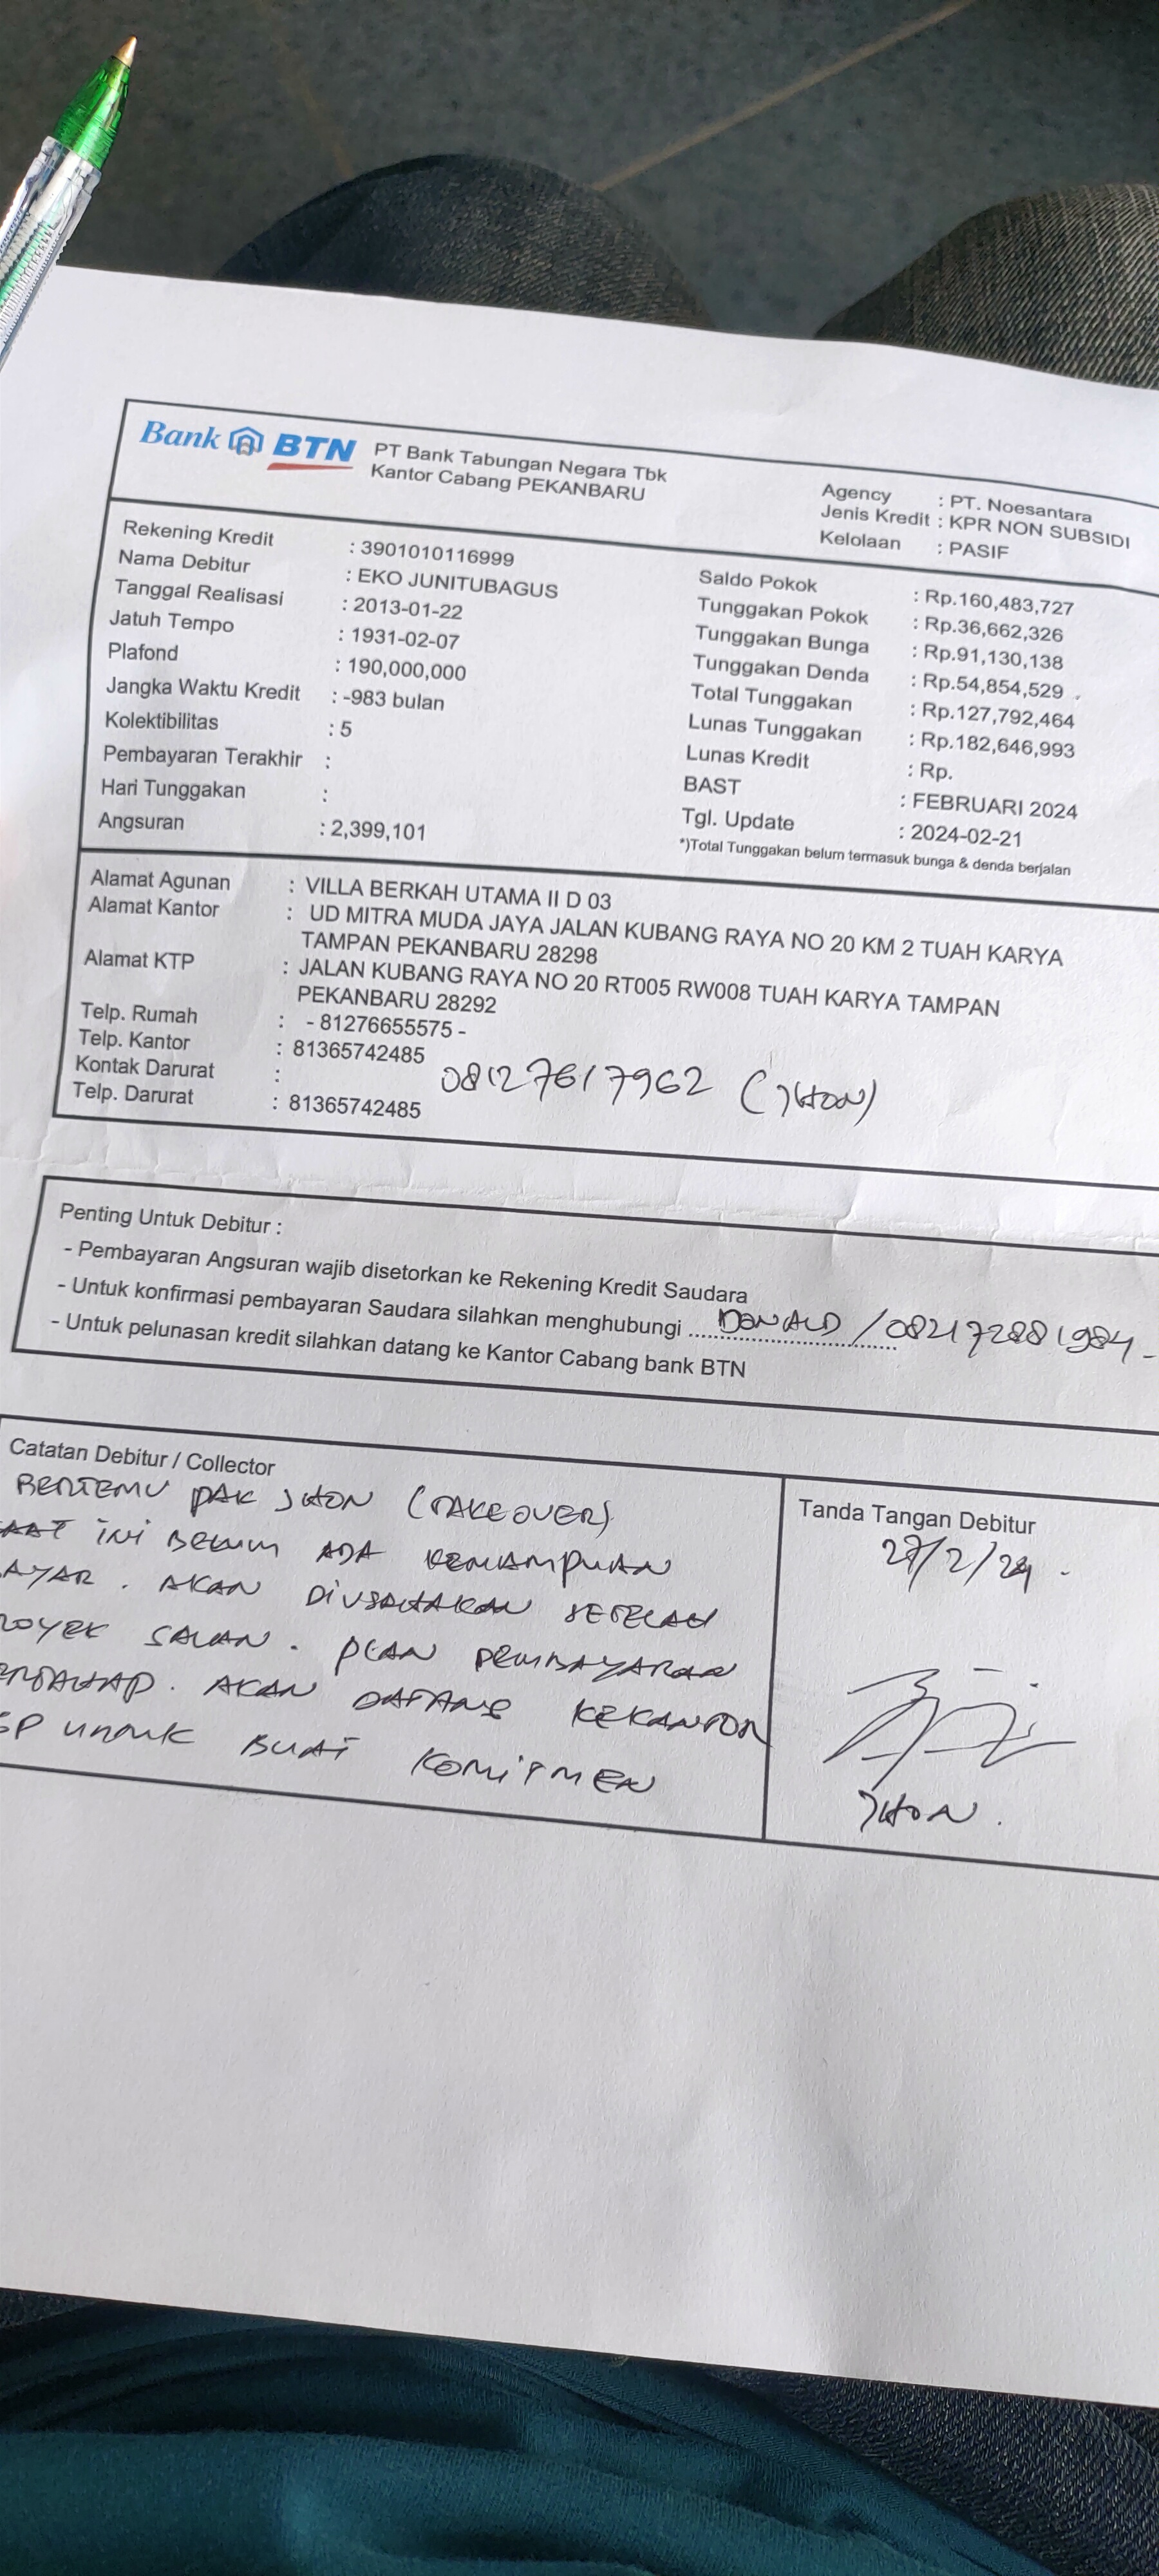 Bank BTN
PT Bank Tabungan Negara Tbk
Kantor Cabang PEKANBARU
Agency : PT. Noesantara
Jenis Kredit : KPR NON SUBSIDI
Kelolaan : PASIF
Rekening Kredit : 3901010116999
Nama Debitur : EKO JUNITUBAGUS
Tanggal Realisasi : 2013-01-22
Jatuh Tempo : 1931-02-07
Plafond : 190,000,000
Jangka Waktu Kredit : -983 bulan
Kolektibilitas : 5
Pembayaran Terakhir :
Hari Tunggakan :
Angsuran : 2,399,101
Saldo Pokok : Rp.160,483,727
Tunggakan Pokok : Rp.36,662,326
Tunggakan Bunga : Rp.91,130,138
Tunggakan Denda : Rp.54,854,529
Total Tunggakan : Rp.127,792,464
Lunas Tunggakan : Rp.182,646,993
Lunas Kredit : Rp.
BAST : FEBRUARI 2024
Tgl. Update : 2024-02-21
*)Total Tunggakan belum termasuk bunga & denda berjalan
Alamat Agunan : VILLA BERKAH UTAMA II D 03
Alamat Kantor : UD MITRA MUDA JAYA JALAN KUBANG RAYA NO 20 KM 2 TUAH KARYA
TAMPAN PEKANBARU 28298
Alamat KTP : JALAN KUBANG RAYA NO 20 RT005 RW008 TUAH KARYA TAMPAN
PEKANBARU 28292
Telp. Rumah : - 81276655575 -
Telp. Kantor : 81365742485
Kontak Darurat : 08127617962 (JHON)
Telp. Darurat : 81365742485
Penting Untuk Debitur :
- Pembayaran Angsuran wajib disetorkan ke Rekening Kredit Saudara
- Untuk konfirmasi pembayaran Saudara silahkan menghubungi DONALD / 082172881984
- Untuk pelunasan kredit silahkan datang ke Kantor Cabang bank BTN
Catatan Debitur / Collector
BERTEMU PAK JHON (TAKEOVER)
INI BELUM ADA KEMAMPUAN
AYAR. AKAN DIUSAHAKAN SETELAH
ROYEK . PLAN PEMBAYARAN
ERTAHAP. AKAN DATANG KEKANTOR
SP UNTUK BUAT KOMITMEN
Tanda Tangan Debitur
27/2/24
JHON.